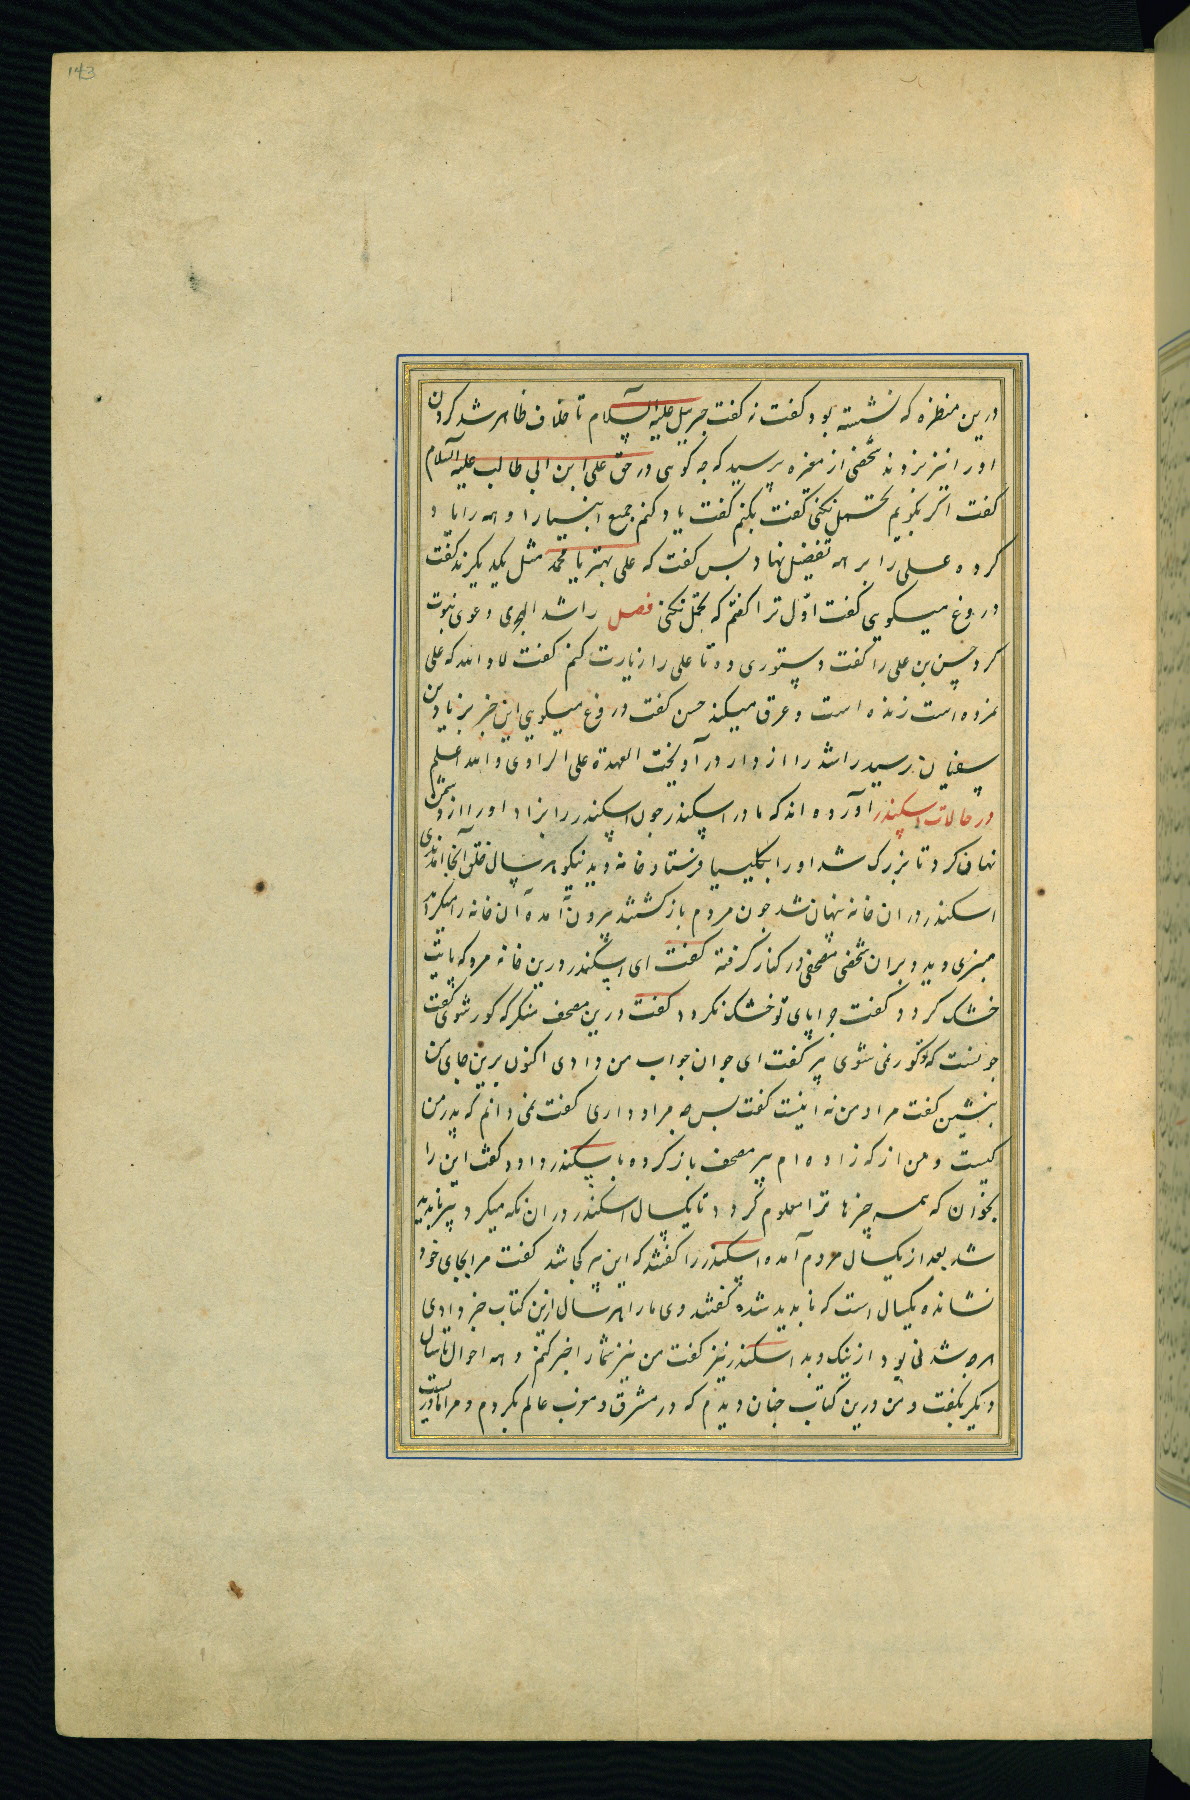 143
درین منظره که نشسته بود گفت نه گفت جبریل علیه السلام تا خلاف ظاهر شد کردن
اورا نیز بزدند شخصی از مغیره پرسید که چه کوئی در حق علی ابن ابی طالب علیه السلام
گفت اگر بگویم تحمل نکنی گفت بکنم گفت یاد کنم جمیع انبیا را و همه را یاد
کرده علی را بر همه تفضیل نهاد پس گفت که علی بهتر یا محمد مثل یکدیگرند گفت
دروغ میکویی گفت اول ترا گفتم که تحمل نکنی فصل راشد الهجری دعوی نبوت
کرد حسن بن علی را گفت دستوری ده تا علی را زیارت کنم گفت لا والله که علی
نمرده است زنده است و عرق میکند حسن گفت دروغ میکویی این خبر بزیاد بن
سفیان رسید راشد را از دار در آویخت العهدة علی الراوی والله اعلم
در حالات اسکندر آورده اند که مادر اسکندر چون اسکندر را بزاد او را از دشمن
نهان کرد تا بزرک شد او را بکلیسیا فرستاد خانه دید نیکو هر سال خلق آنجا آمدندی
اسکندر در ان خانه پنهان شد چون مردم باز گشتند بیرون آمده آن خانه را میگردید
منبری دید و بران شخصی مصحفی در کنار گرفته گفت ای اسکندر درین خانه مرو که پایت
خشک کردد گفت چرا پای تو خشک نکردد گفت درین مصحف منکر که کور شوی گفت
چونست که تو کور نمی شوی پیر گفت ای جوان جواب من دادی اکنون برین جای من
بنشین گفت مراد من نه اینست گفت پس چه مراد داری گفت نمی دانم که پدر من
کیست و من از که زاده ام پیر مصحف باز کرده باسکندر داد و گفت این را
بخوان که همه چیزها ترا معلوم کردد تا یکسال اسکندر در ان نکه میکرد پیر ناپدید
شد بعد از یکسال مردم آمده اسکندر را گفتند که این پیر کجا شد گفت مرا بجای خود
نشانده یکسال است که ناپدید شده گفتند وی ما را هر سال ازین کتاب خبر دادی
هرچه شدنی بود از نیک و بد اسکندر نیز گفت من نیز شما را خبر کنم و همه احوال تا سال
دیگر بگفت و من درین کتاب چنان دیدم که در مشرق و مغرب عالم بکردم و مرا مادریست